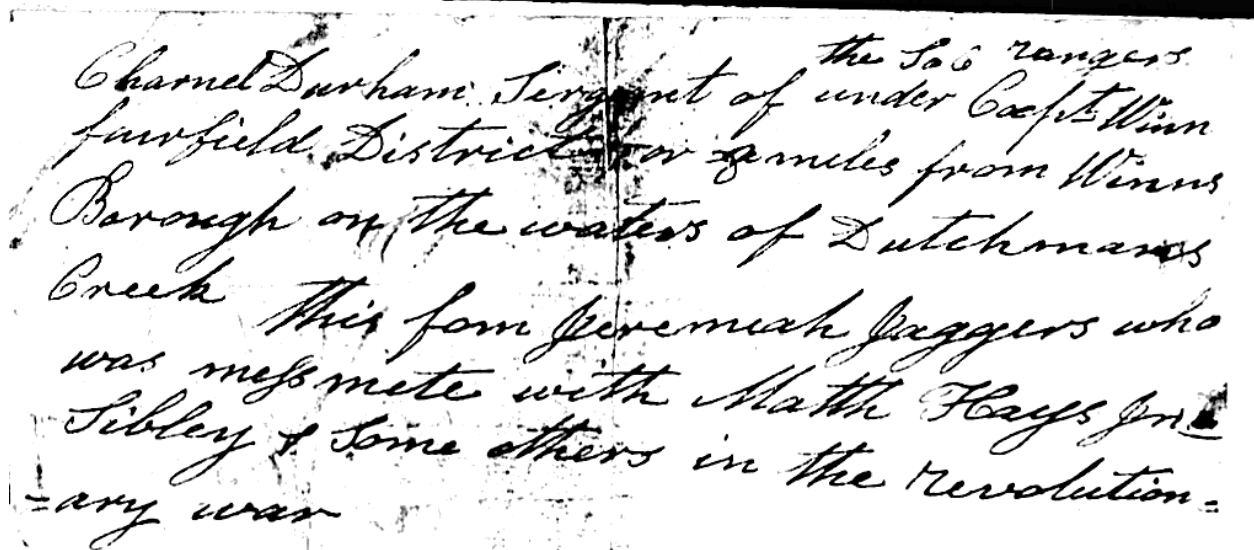 the So C rangers
Charnel Durham Sirgent of under Capt Winn
fairfield District or miles from Winns
Borough on the waters of Dutchmans
Creek
this fom Jeremiah Jaggers who
was messmete with Matth Hays Jno
Sibley & Some others in the revolution=
=ary war